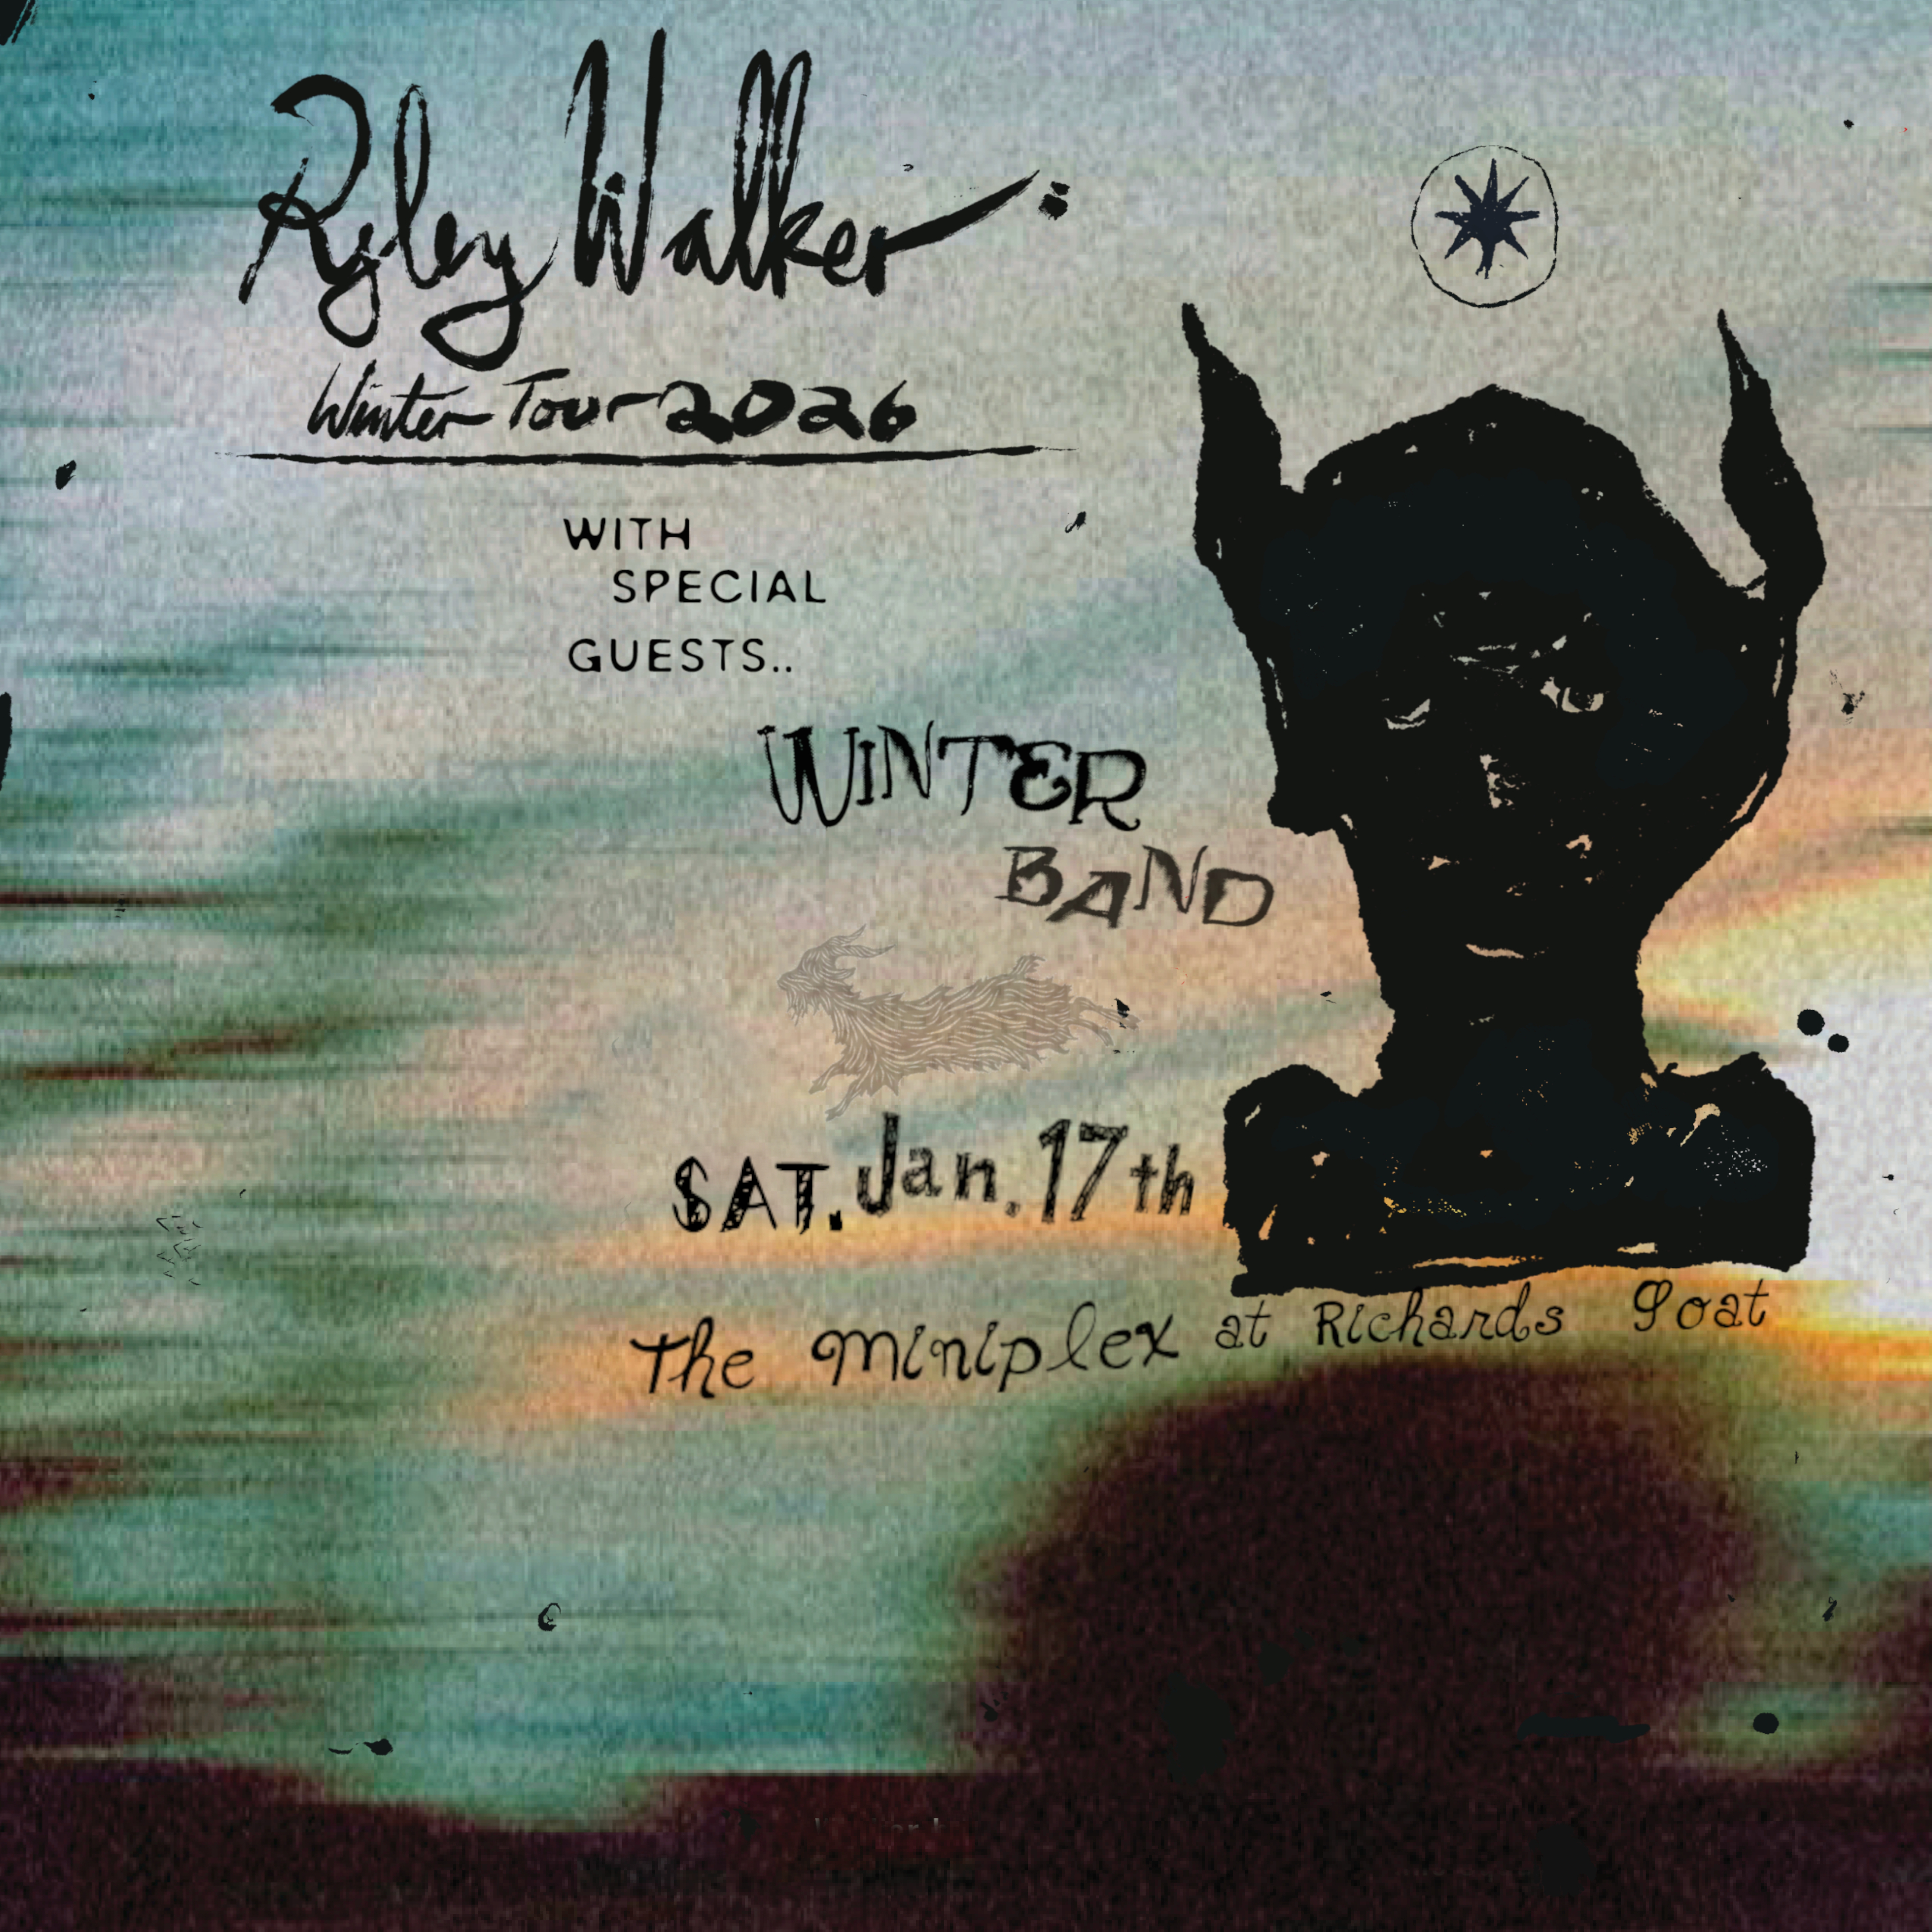 Ryley Walker:
Winter Tour 2026
WITH
SPECIAL
GUESTS..
WINTER
BAND
SAT. Jan. 17th
The Miniplex at Richards Goat